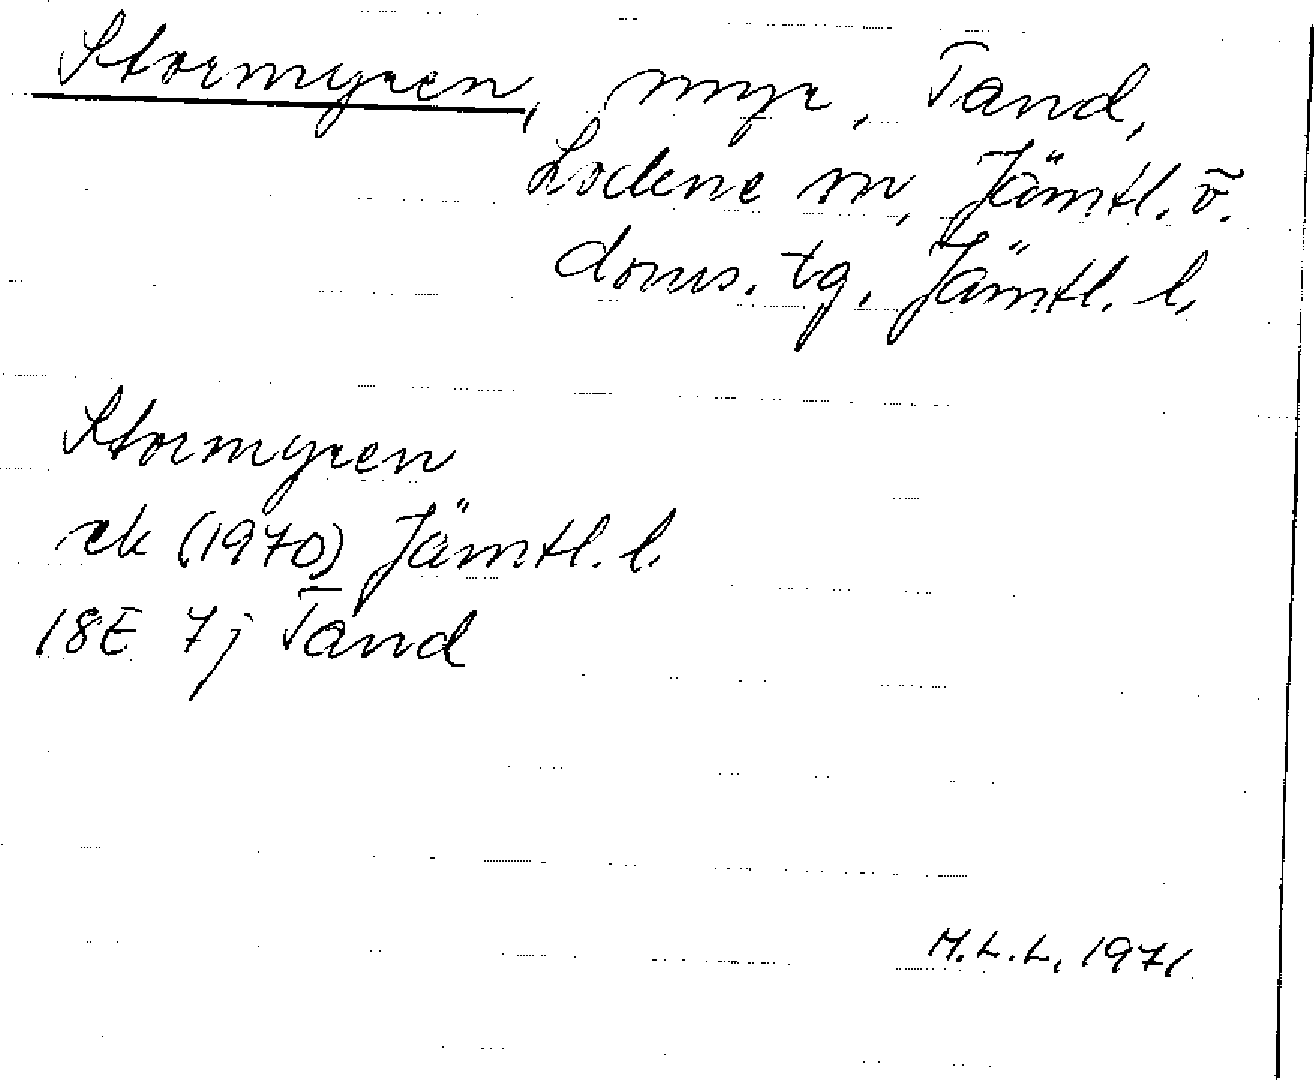 Stormyren, myr, Tand,
Lockne sn, Jämtl. v.
doms. tg. Jämtl. l.
Stormyren
ek (1970) Jämtl. l.
18E 7j Tand
M.L.L. 1971